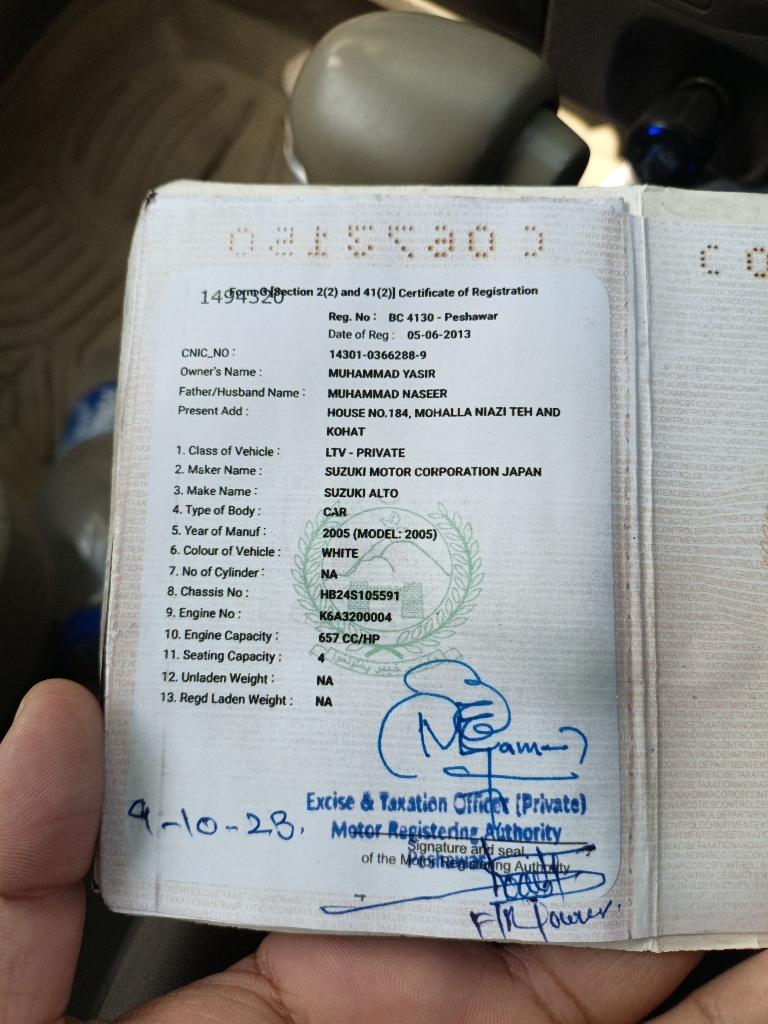 1494320
Form G [Section 2(2) and 41(2)] Certificate of Registration
Reg. No : BC 4130 - Peshawar
Date of Reg : 05-06-2013
CNIC_NO : 14301-0366288-9
Owner's Name : MUHAMMAD YASIR
Father/Husband Name : MUHAMMAD NASEER
Present Add : HOUSE NO.184, MOHALLA NIAZI TEH AND
KOHAT
1. Class of Vehicle : LTV - PRIVATE
2. Maker Name : SUZUKI MOTOR CORPORATION JAPAN
3. Make Name : SUZUKI ALTO
4. Type of Body : CAR
5. Year of Manuf : 2005 (MODEL: 2005)
6. Colour of Vehicle : WHITE
7. No of Cylinder : NA
8. Chassis No : HB24S105591
9. Engine No : K6A3200004
10. Engine Capacity : 657 CC/HP
11. Seating Capacity : 4
12. Unladen Weight : NA
13. Regd Laden Weight : NA
Excise & Taxation Officer (Private)
9-10-23. Motor Registering Authority
Peshawar
Signature and seal
of the Motor Registering Authority